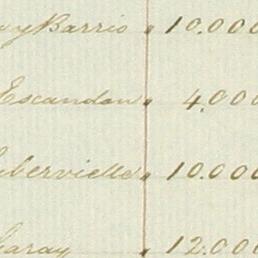 y Barrio " 10.000
Escandon " 4.000
ubervielle " 10.000
Garay " 12.000